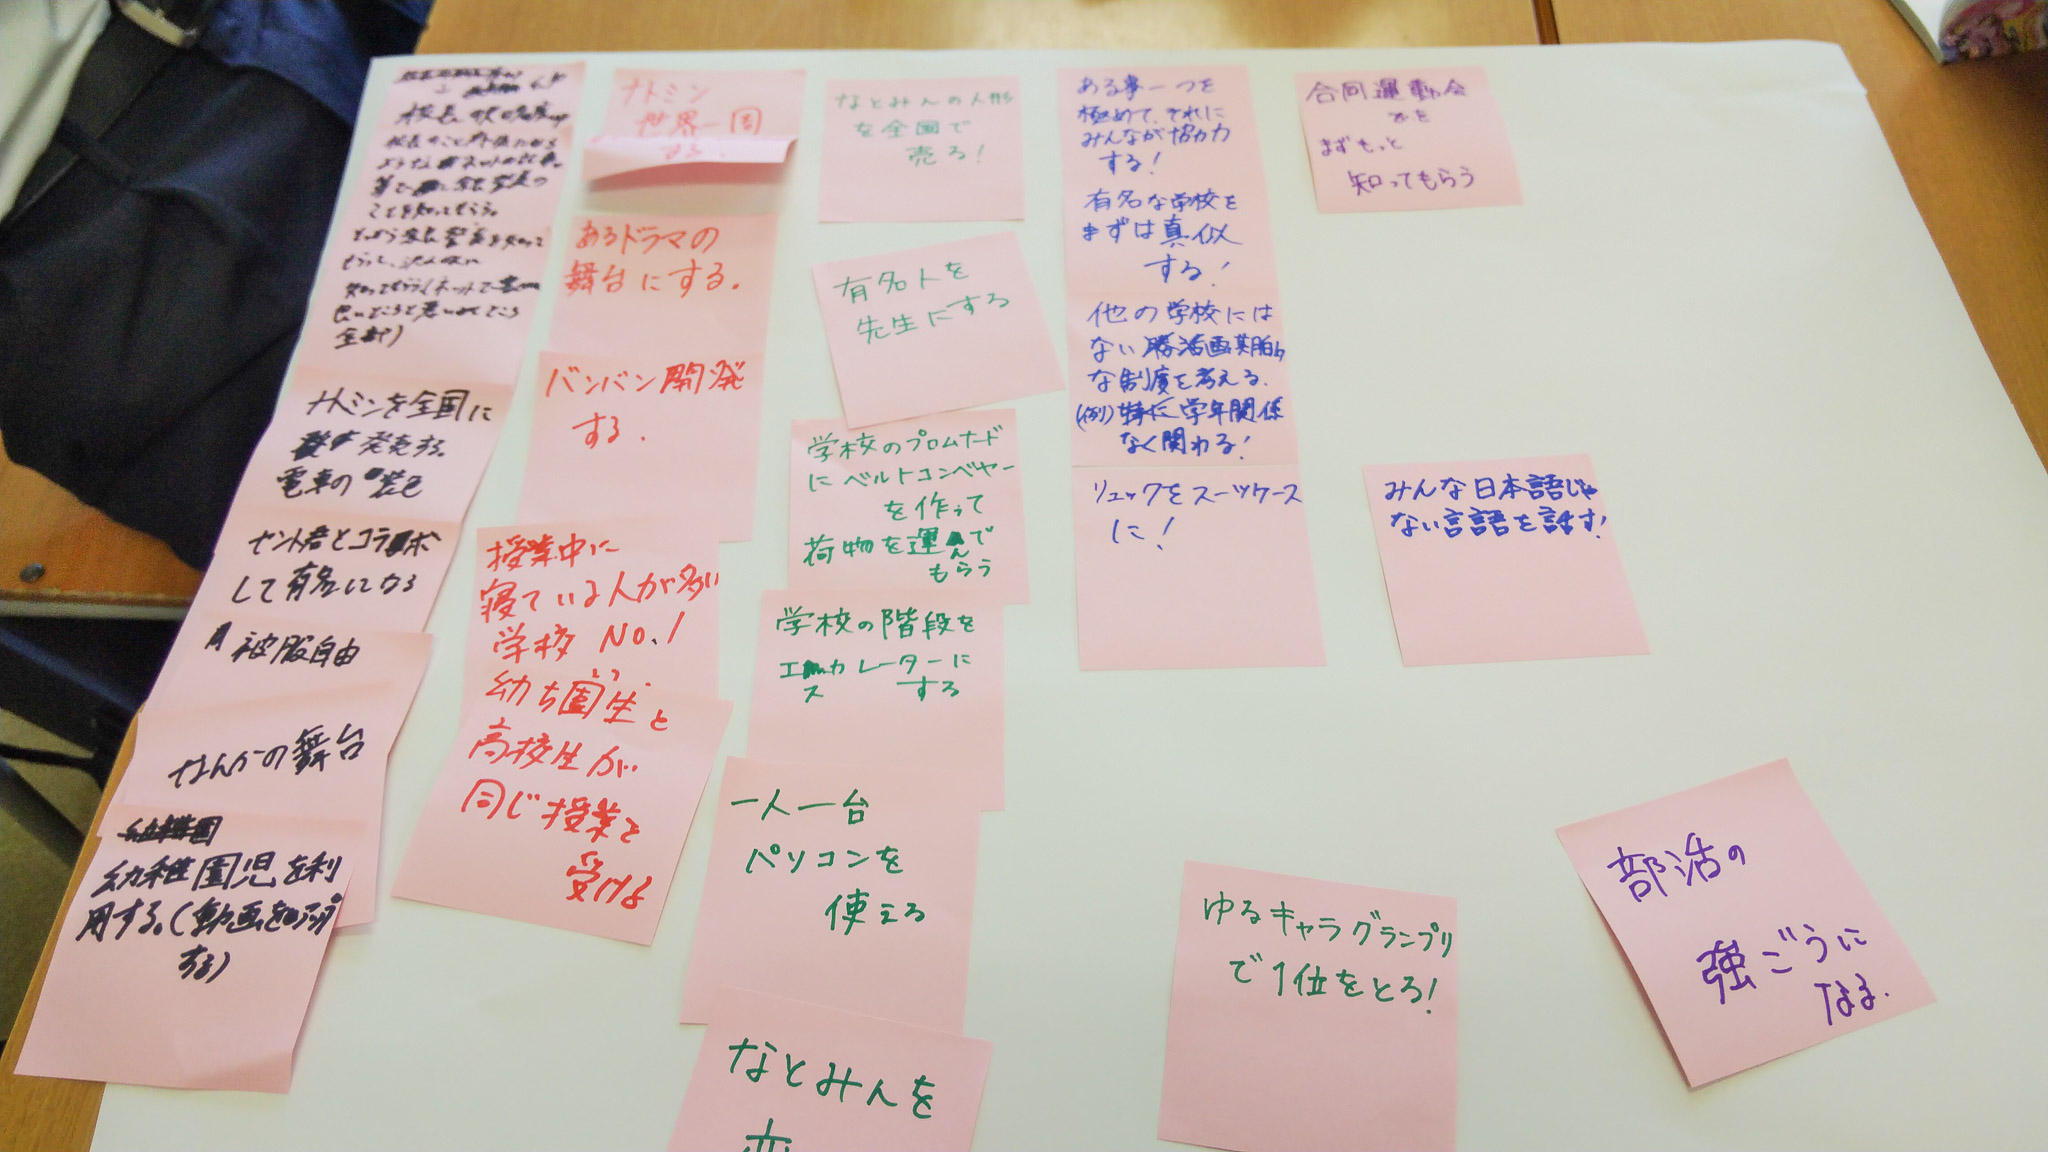 校長の
ことを知ってもらう。
全部)
ナトミンを全国に
発売する。
電車の 装色
セント君とコラボ
して有名になる
被服自由
なんかの舞台
幼稚園児を利
用する。(動画をアップ
する)
ナトミン
世界一周
する.
あるドラマの
舞台にする。
バンバン開発
する.
授業中に
寝ている人が多い
学校 NO.1
幼ち園生と
高校生が
同じ授業を
受ける
なとみんの人形
を全国で
売る!
有名人を
先生にする
学校のプロムナード
にベルトコンベヤー
を作って
荷物を運んで
もらう
学校の階段を
エスカレーターに
する
一人一台
パソコンを
使える
なとみんを
ある事一つを
極めて、それに
みんなが協力
する!
有名な学校を
まずは真似
する!
他の学校には
ない 画期的
な制度を考える.
(例) 学年関係
なく関わる!
リュックをスーツケース
に!
合同運動会
を
まずもっと
知ってもらう
みんな日本語じゃ
ない言語を話す!
ゆるキャラグランプリ
で1位をとろ!
部活の
強ごうに
なる.